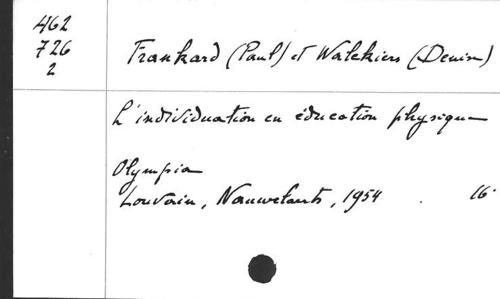 462
726
2
Frankard (Paul) et Walckiers (Denise)
L'individuation en éducation physique
Olympia
Louvain, Nauwelaerts, 1954 . 16°